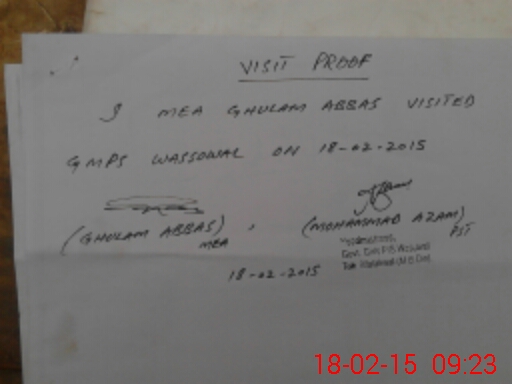 VISIT PROOF
I MEA GHULAM ABBAS VISITED
GMPS WASSOWAL ON 18-02-2015
(GHULAM ABBAS) MEA
(MOHAMMAD AZAM) PST
18-02-2015
18-02-15 09:23